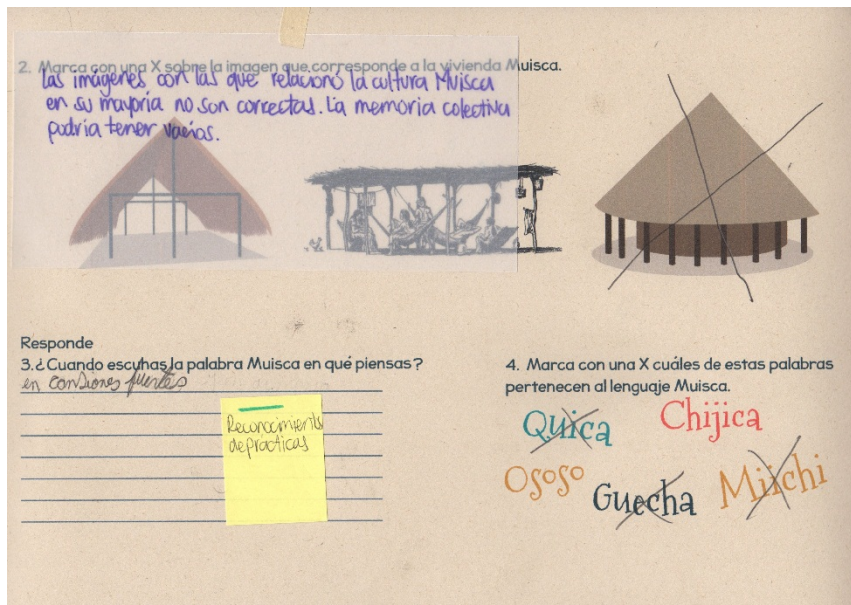 2. Marca con una X sobre la imagen que corresponde a la vivienda Muisca.
Las imágenes con las que relacionó la cultura Muisca
en su mayoría no son correctas. La memoria colectiva
podría tener vacíos.
Responde
3.¿Cuando escuhas la palabra Muisca en qué piensas?
en fuertes
Reconocimiento
de practicas
4. Marca con una X cuáles de estas palabras
pertenecen al lenguaje Muisca.
Quica
Chijica
Ososo
Guecha
Miichi